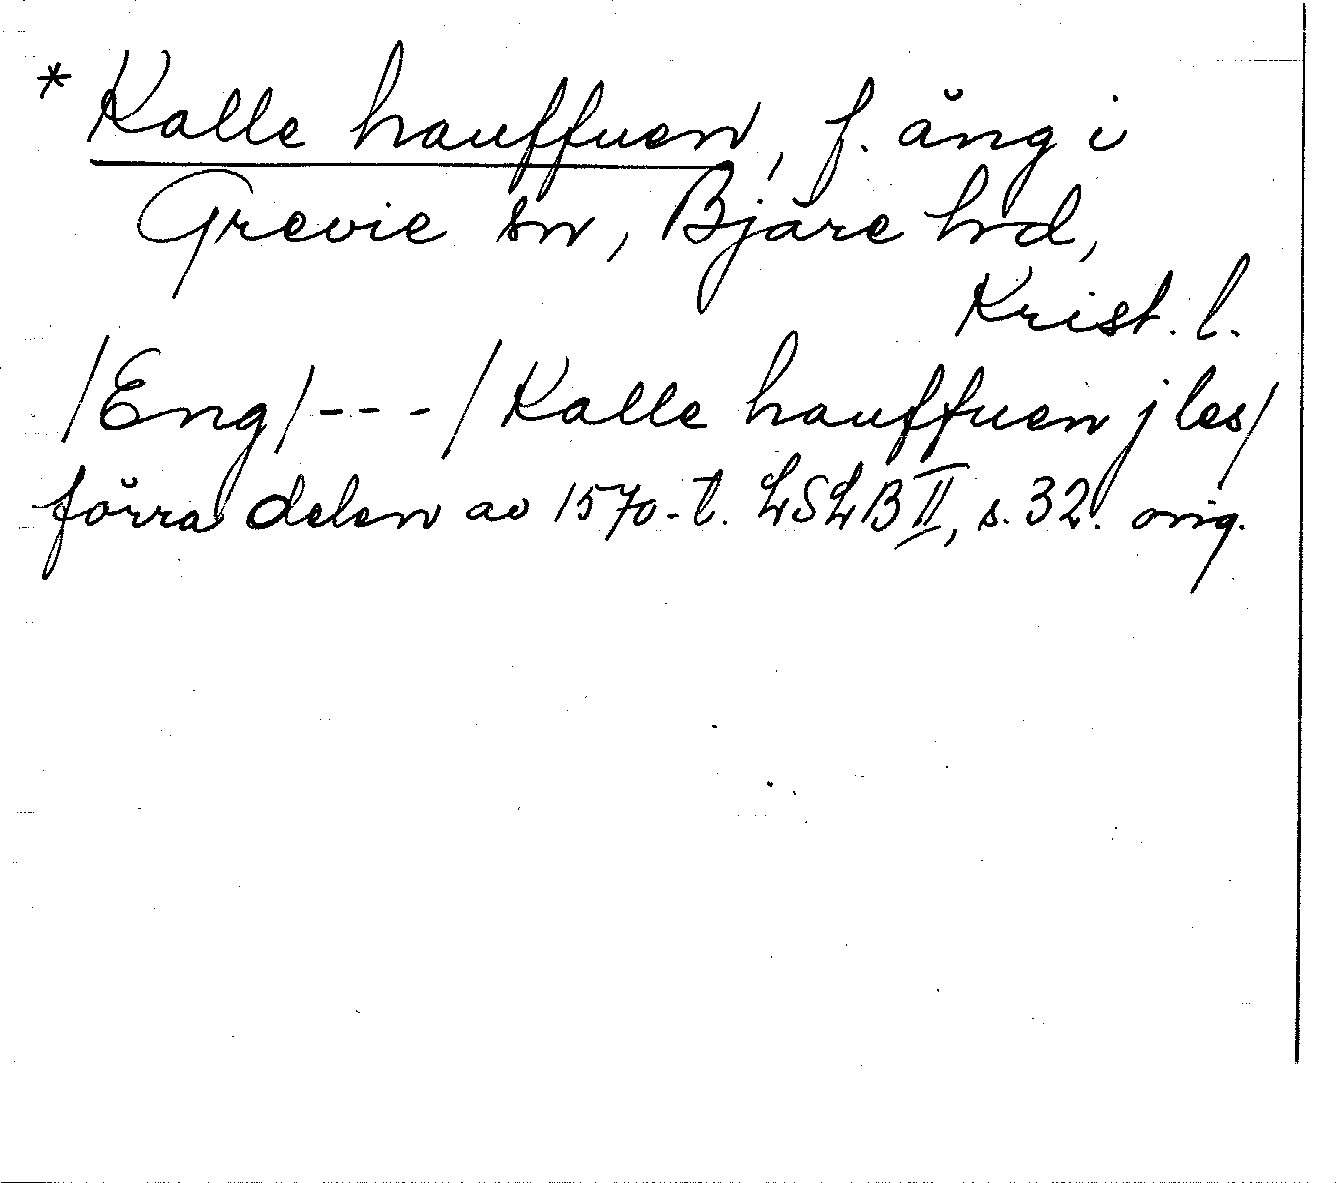 * Kalle hauffuen, f. äng i
Grevie sn, Bjäre hd,
Krist. l.
/Eng/ --- / Kalle hauffuen j les/
förra delen av 1570-t. LSLB II, s. 32. orig.